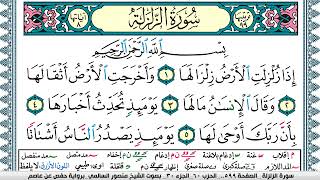 سورة الزلزلة
بِسْمِ ٱللَّهِ ٱلرَّحْمَٰنِ ٱلرَّحِيمِ
إِذَا زُلْزِلَتِ ٱلْأَرْضُ زِلْزَالَهَا ١ وَأَخْرَجَتِ ٱلْأَرْضُ أَثْقَالَهَا
٢ وَقَالَ ٱلْإِنسَٰنُ مَا لَهَا ٣ يَوْمَئِذٍ تُحَدِّثُ أَخْبَارَهَا ٤
بِأَنَّ رَبَّكَ أَوْحَىٰ لَهَا ٥ يَوْمَئِذٍ يَصْدُرُ ٱلنَّاسُ أَشْتَاتًا
سورة الزلزلة الصفحة ٥٩٩ الحزب ٦٠ الجزء ٣٠ بصوت الشيخ منصور السالمي برواية حفص عن عاصم